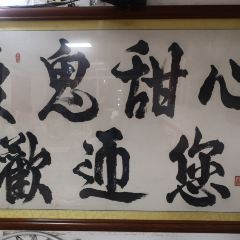 鬼甜心
歡迎您